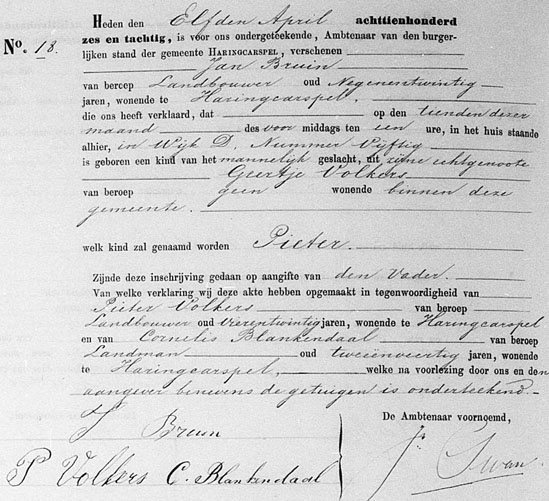 Heden den Elfden April achttienhonderd
No. 18. zes en tachtig, is voor ons ondergeteekende, Ambtenaar van den burger-
lijken stand der gemeente HARINGCARSPEL, verschenen
Jan Bruin
van beroep Landbouwer oud Negenentwintig
jaren, wonende te Haringcarspel,
die ons heeft verklaard, dat op den tienden dezer
maand des voor middags ten een ure, in het huis staande
alhier, in Wijk D. Nummer Vijftig
is geboren een kind van het mannelijk geslacht, uit zijne echtgenoote
Geertje Volkers
van beroep geen wonende binnen deze
gemeente.
welk kind zal genaamd worden Pieter.
Zijnde deze inschrijving gedaan op aangifte van den Vader.
Van welke verklaring wij deze akte hebben opgemaakt in tegenwoordigheid van
Pieter Volkers van beroep
Landbouwer oud Vierentwintig jaren, wonende te Haringcarspel
en van Cornelis Blankendaal van beroep
Landman oud tweeënveertig jaren, wonende
te Haringcarspel, welke na voorlezing door ons en den
aangever benevens de getuigen is onderteekend.
J Bruin
De Ambtenaar voornoemd,
P Volkers C. Blankendaal
Swan